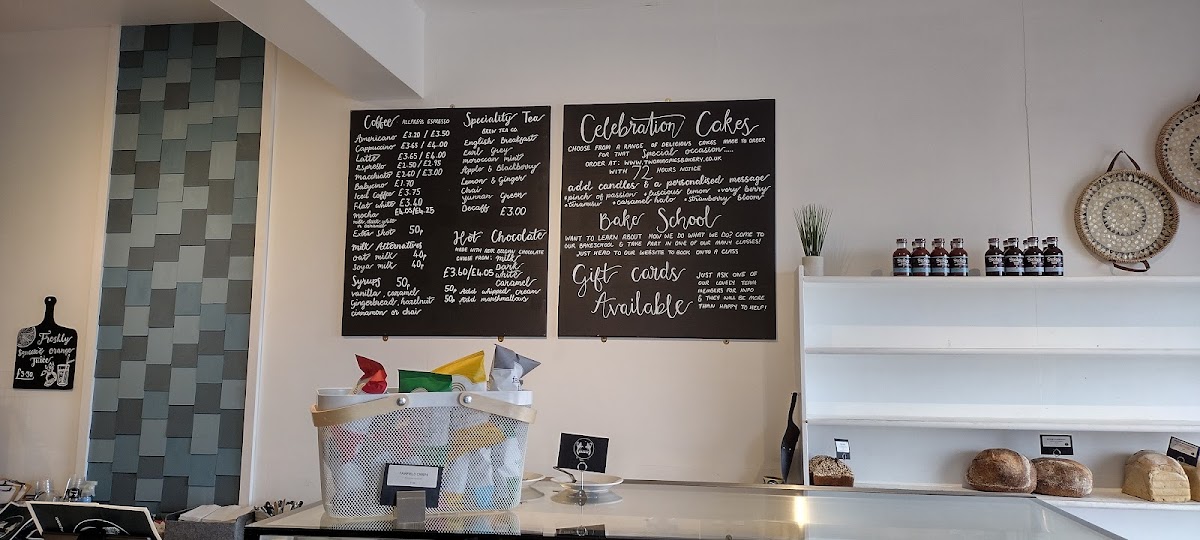 Coffee ALLPRESS ESPRESSO
Americano £3.20 / £3.50
Cappuccino £3.65 / £4.00
Latte £3.65 / £4.00
Espresso £2.50 / £2.75
Macchiato £2.60 / £3.00
Babycino £1.70
Iced Coffee £3.75
Flat white £3.40
Mocha £4.05/£4.25
milk, dark, white
or caramel
Extra Shot 50p
Milk Alternatives
oat milk 40p
Soya milk 40p
Syrups 50p
vanilla, caramel
Gingerbread, hazelnut
cinnamon or chai
Speciality Tea
BREW TEA CO.
English Breakfast
Earl Grey
moroccan mint
Apple & Blackberry
Lemon & Ginger
Chai
Yunnan Green
Decaff £3.00
Hot Chocolate
MADE WITH REAL BELGIAN CHOCOLATE
CHOOSE FROM: milk
Dark
£3.60/£4.05 white
Caramel
50p Add whipped cream
50p Add marshmallows
Celebration Cakes
CHOOSE FROM A RANGE OF DELICIOUS CAKES MADE TO ORDER
FOR THAT Special occasion.....
ORDER AT: WWW.TWOMAGPIESBAKERY.CO.UK
WITH 72 HOURS NOTICE
add candles & a personalised message
•pinch of passion •luscious lemon •very berry
•tiramisu •caramel halo •strawberry bloom
Bake School
WANT TO LEARN ABOUT HOW WE DO WHAT WE DO? COME TO
OUR BAKESCHOOL & TAKE PART IN ONE OF OUR MANY CLASSES!
JUST HEAD TO OUR WEBSITE TO BOOK ONTO A CLASS
Gift cards
Available
JUST ASK ONE OF
OUR LOVELY TEAM
MEMBERS FOR INFO
& THEY WILL BE MORE
THAN HAPPY TO HELP!
Freshly
Squeezed Orange
Juice
£3.50